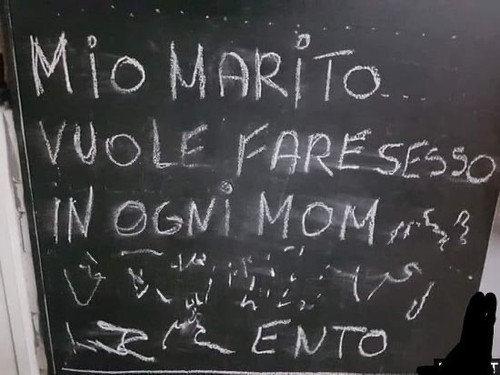 MIO MARITO...
VUOLE FARE SESSO
IN OGNI MOM
ENTO